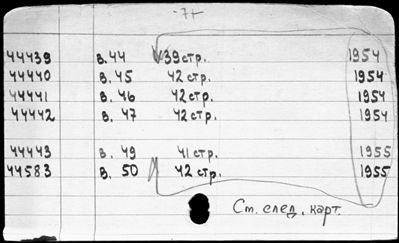 -7-
44439 в. 44 39 стр. 1954
44440 в. 45 42 стр. 1954
44441 в. 46 42 стр. 1954
44442 в. 47 42 стр. 1954
44443 в. 49 41 стр. 1955
44583 в. 50 42 стр. 1955
См. след. карт.